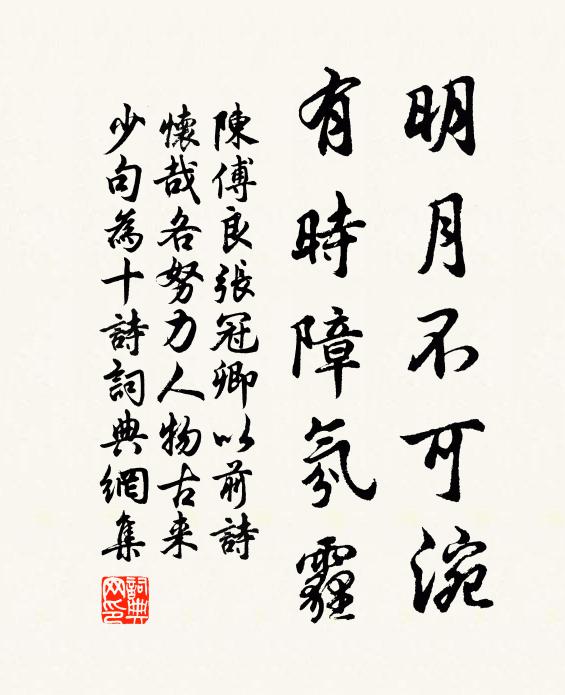 明月不可涴
有時障氛霾
陳傅良張冠卿以前詩
懷哉各努力人物古来
少句為十詩詞典網集